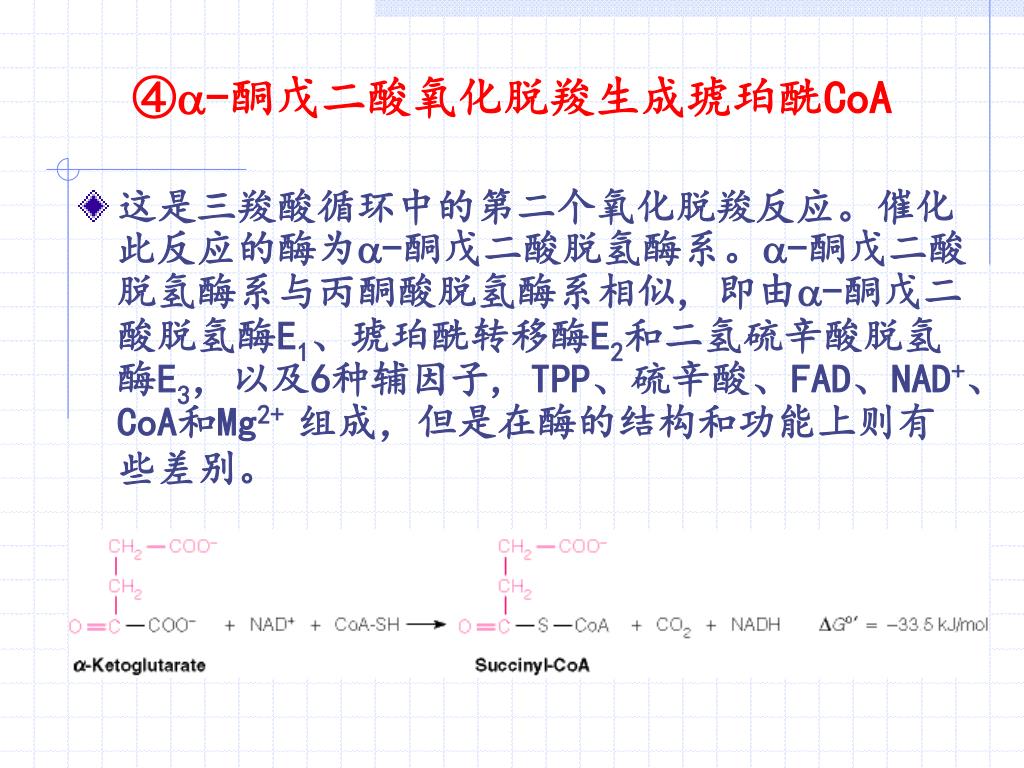 ④α-酮戊二酸氧化脱羧生成琥珀酰CoA
这是三羧酸循环中的第二个氧化脱羧反应。催化
此反应的酶为α-酮戊二酸脱氢酶系。α-酮戊二酸
脱氢酶系与丙酮酸脱氢酶系相似，即由α-酮戊二
酸脱氢酶E₁、琥珀酰转移酶E₂和二氢硫辛酸脱氢
酶E₃，以及6种辅因子，TPP、硫辛酸、FAD、NAD⁺、
CoA和Mg²⁺ 组成，但是在酶的结构和功能上则有
些差别。
CH₂—COO⁻ CH₂—COO⁻
CH₂ CH₂
O=C—COO⁻ + NAD⁺ + CoA-SH → O=C—S—CoA + CO₂ + NADH ΔG°′ = −33.5 kJ/mol
α-Ketoglutarate Succinyl-CoA